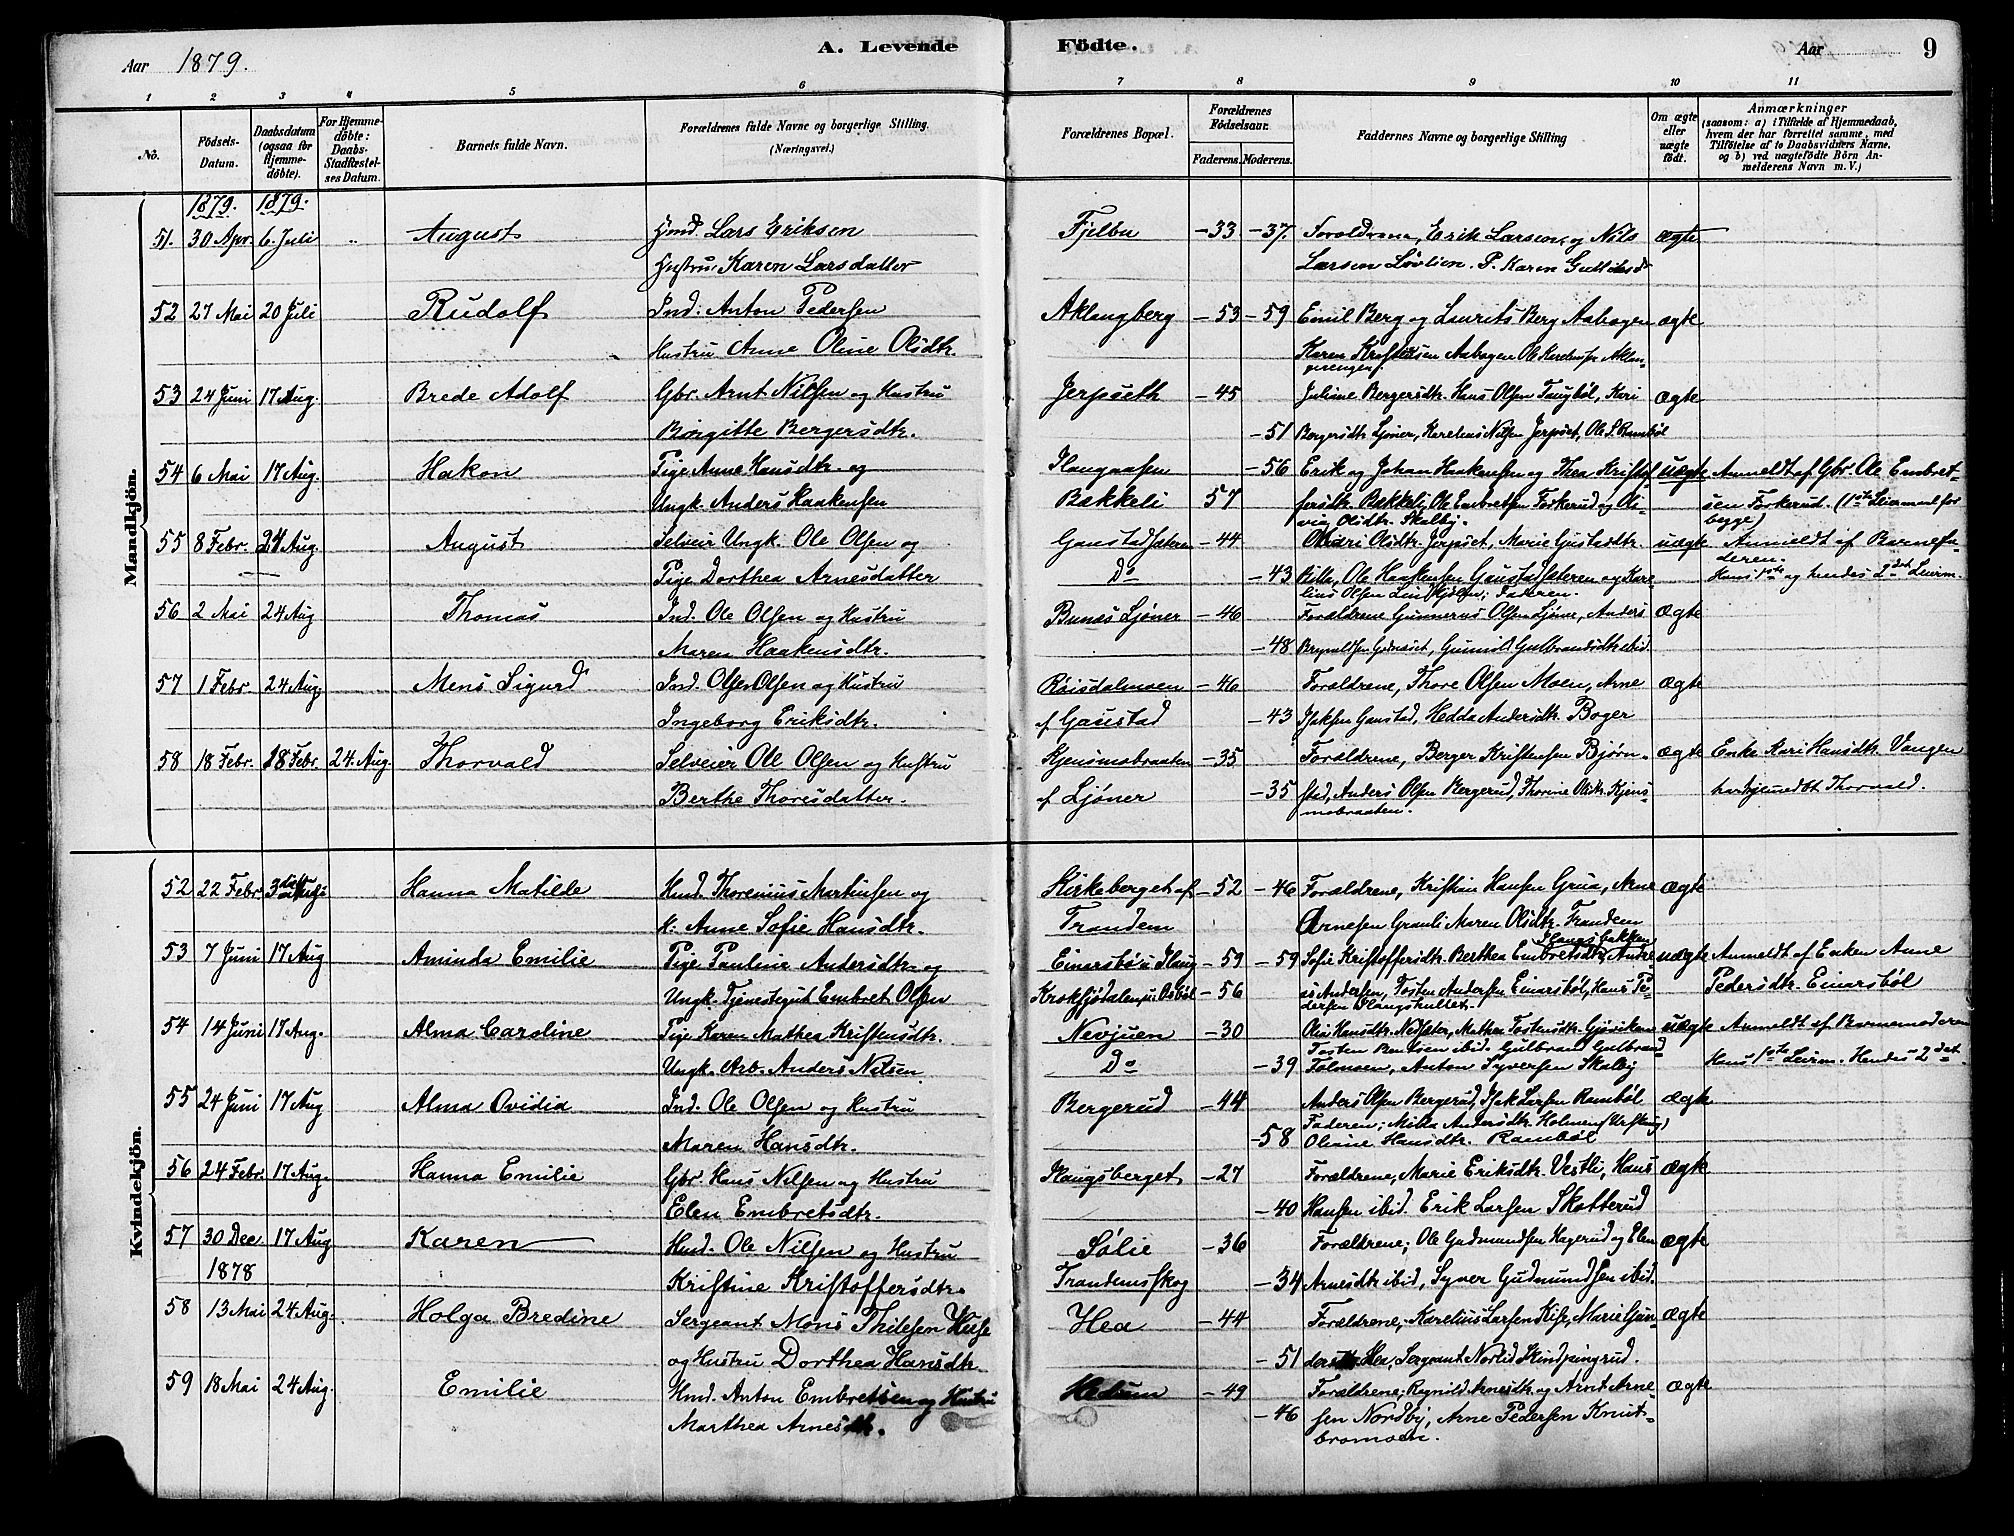 Aar 1879. A. Levende Födte. Aar 9
1 2 3 4 5 6 7 8 9 10 11
No. Födsels-Datum. Daabsdatum (ogsaa för Hjemmedöbte). For Hjemmedöbte: Daabs-Stadfæstelses Datum. Barnets fulde Navn. Forældrenes fulde Navne og borgerlige Stilling. (Næringsvei.) Forældrenes Bopæl. Forældrenes Födselsaar. Faderens. Moderens. Faddernes Navne og borgerlige Stilling Om ægte eller uægte födt. Anmærkninger (saasom: a) i Tilfælde af Hjemmedaab, hvem der har forrettet samme, med Tilföielse af to Daabsvidners Navne, og b) ved uægtefödte Börn Anmelderens Navn m. V.)
Mandkjön.
1879. 1879.
51. 30 Apr. 6. Juli " August Hmd. Lars Eriksen Fjelbu -33 -37. Forældrene, Erik Larsen, og Nils ægte
Hustru Karen Larsdatter Larsen Løvlien. P. Karen
52 27 Mai 20 Juli Rudolf Ind. Anton Pedersen Aklangberg -53 -59 Emil Berg og Laurits Berg Aabogen ægte
Hustru Anne Oline Olsdtr. Karen Aabogen Ole
53 24 Juni 17 Aug. Brede Adolf Gbr. Arnt Nilsen og Hustru Jerpseth -45 Juliane Bergersdtr. Hans Olsen Taugbøl, Kari ægte
Borgitte Bergersdtr. -51 Bergersdtr. Ljøner, Karelius Nilsen Jerpset, Ole P. Rambøl
54 6 Mai 17 Aug. Hakon Pige Anne Hansdtr. og Haugaasen -56 Erik og Johan Haakensen og Thea Kristof- uægte Anmeldt af Gbr. Ole Embret-
Ungk. Anders Haakensen Bakkeli 57 fersdtr. Bakkeli, Ole Embretsen Forkerud og Oli- sen Forkerud. (1ste Leiermaal for
via Olsdtr. Skalby. begge)
55 8 Febr. 24 Aug. August Selveier Ungk. Ole Olsen og Gaustadsæteren -44 Olsdtr. Jerpset, Marie uægte Anmeldt af Barnefa-
deren.
Pige Dorthea Arnesdatter Do -43 Ole Haakensen Gaustadsæteren og Kare- Hans 1ste og hendes 2det Leierm.
lius Olsen Faderen.
56 2 Mai 24 Aug Thomas Ind. Ole Olsen og Hustru Bunæs Ljøner -46 Forældrene Gunnerus Olsen Ljøner, Anders ægte
Maren Haakensdtr. -48 Gunnild Gulbrandsdtr. ibid.
57 1 Febr. 24 Aug Mens Sigurd Ind. Olsen og Hustru Røisdalmoen -46 Forældrene, Thore Olsen Moen, Arne ægte
Ingeborg Eriksdtr. f Gaustad -43 Isaksen Gaustad, Hedda Andersdtr. Boger
58 18 Febr. 18 Febr. 24. Aug Thorvald Selveier Ole Olsen og Hustru Kjensmobraaten -35 Forældrene, Berger Kristensen Bjørn- ægte Enke Kari Hansdtr. Vangen
Berthe Thoresdatter. f Ljøner -35 stad, Anders Olsen Bergerud, Thorine Olsdtr. Kjens- har hjemedøbt Thorvald.
mobraaten.
Kvindekjön.
52 22 Febr. 3die Hanna Matilde Hmd. Thorenius Martinsen og Kirkeberget af -52 -46 Forældrene, Kristian Hansen Grua, Arne ægte
H: Anne Sofie Hansdtr. Trandem Arnesen Granli Maren Olsdtr. Trandem
53 7 Juni 17 Aug Aminda Emilie Pige Pauline Andersdtr. og Einarsbøl -59 -59 Sofie Kristoffersdtr. Berthea Embretsdtr. Andre- uægte Anmeldt af Enken Anne
Ungk. Tjenestegut Embret Olsen -56 as Andersen, Tosten Andersen Einarsbøl, Hans Pe- Pedersdtr. Einarsbøl
dersen Haugstullet.
54 14 Juni 17 Aug. Alma Caroline Pige Karen Mathea Kristensdtr. Nevjuen -30 Hansdtr. Nedsæter, Mathea Tostensdtr. Gjøviken uægte Anmeldt af Barnemoderen
Tosten Bentsen ibid. Gulbrand Gulbrand-
Ungk. Arb. Anders Nilsen Do -39 Folmoen, Anton Syversen Skalby Hans 1ste Leierm. Hendes 2det.
55 24 Juni 17 Aug Alma Ovidia Ind. Ole Olsen og Hustru Bergerud -44 Anders Olsen Bergerud, Isak Larsen Rambøl ægte
Faderen; Milla Andersdtr. Holmen (Urskoug)
Maren Hansdtr. -58 Oliane Hansdtr. Rambøl
56 24 Febr. 17 Aug. Hanna Emilie Gbr. Hans Nilsen og Hustru Haugsberget -27 Forældrene, Marie Eriksdtr. Vestli, Hans ægte
Elen Embretsdtr. -40 Hansen ibid. Erik Larsen Skotterud
57 30 Dec 17 Aug Karen Hmd. Ole Nilsen og Hustru Solie -36 Forældrene; Ole Gudmundsen Hagerud og Elen ægte
1878 Kristine Kristoffersdtr. Trandemsskog -34 Arnesdtr. ibid, Syver Gudmundsen ibid.
58 13 Mai 24 Aug. Holga Bredine Sergeant Mons Thilesen Huse Hea -44 Forældrene, Karelius Larsen Kise, Marie Gun- ægte
og Hustru Dorthea Hansdtr. -51 dersdtr. Hea, Sergeant Norlid Skindpungrud.
59 18 Mai 24 Aug. Emilie Hmd. Anton Embretsen og Hustru Hedum -49 Forældrene, Ragnild Arnesdtr. og Arnt Arne- ægte
Marthea Arnesdtr. -46 sen Nordby, Arne Pedersen Knuts-
bromoen.